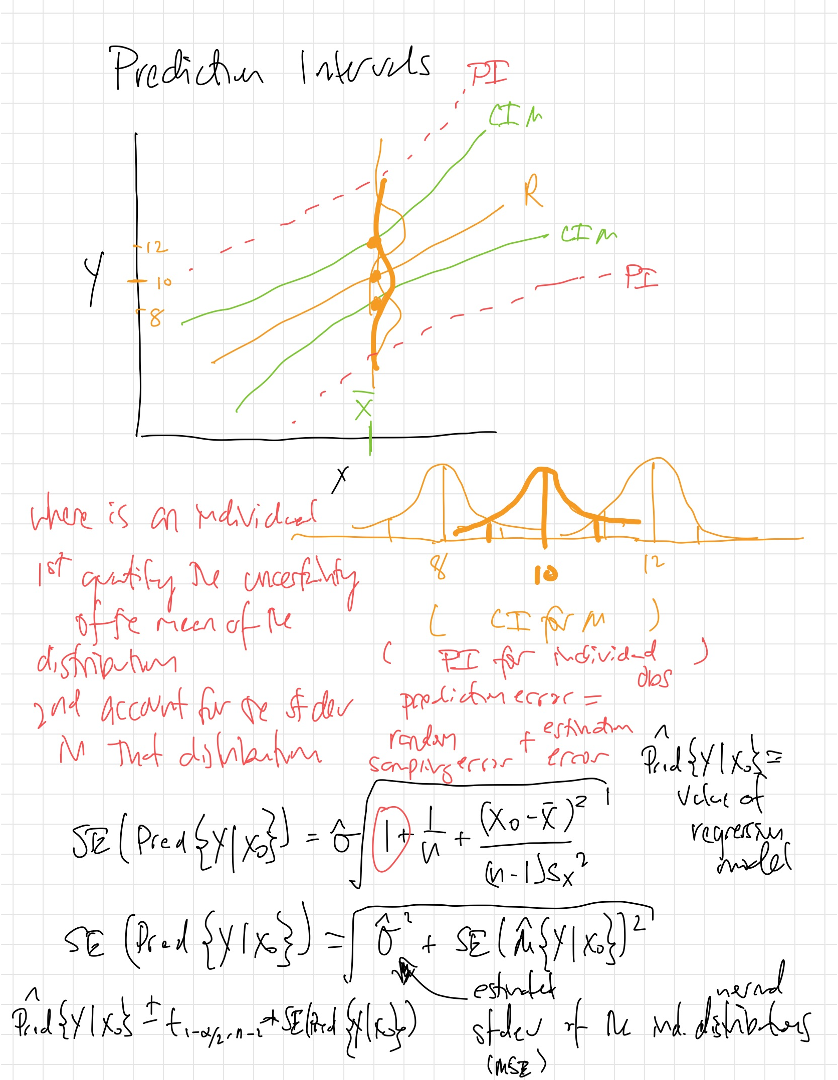 Prediction Intervals
PI
CI μ
R
CI μ
PI
Y
12
10
8
X̄
X
where is an individual
1st quantify the uncertainty
of the mean of the
distribution
2nd account for the st dev
in that distribution
8 10 12
( CI for μ )
( PI for individual )
obs
prediction error =
random + estimation
sampling error error
P̂red{Y|X₀} =
value of
regression
model
SE(Pred{Y|X₀}) = σ̂ √(1 + 1/n + (X₀-X̄)²/(n-1)Sx²)
SE (Pred{Y|X₀}) = √(σ̂² + SE(μ̂{Y|X₀})²)
P̂red{Y|X₀} ± t₁₋α/₂, n-2 * SE(Pred{Y|X₀})
estimated normal
stdev of the ind. distributions
(MSE)